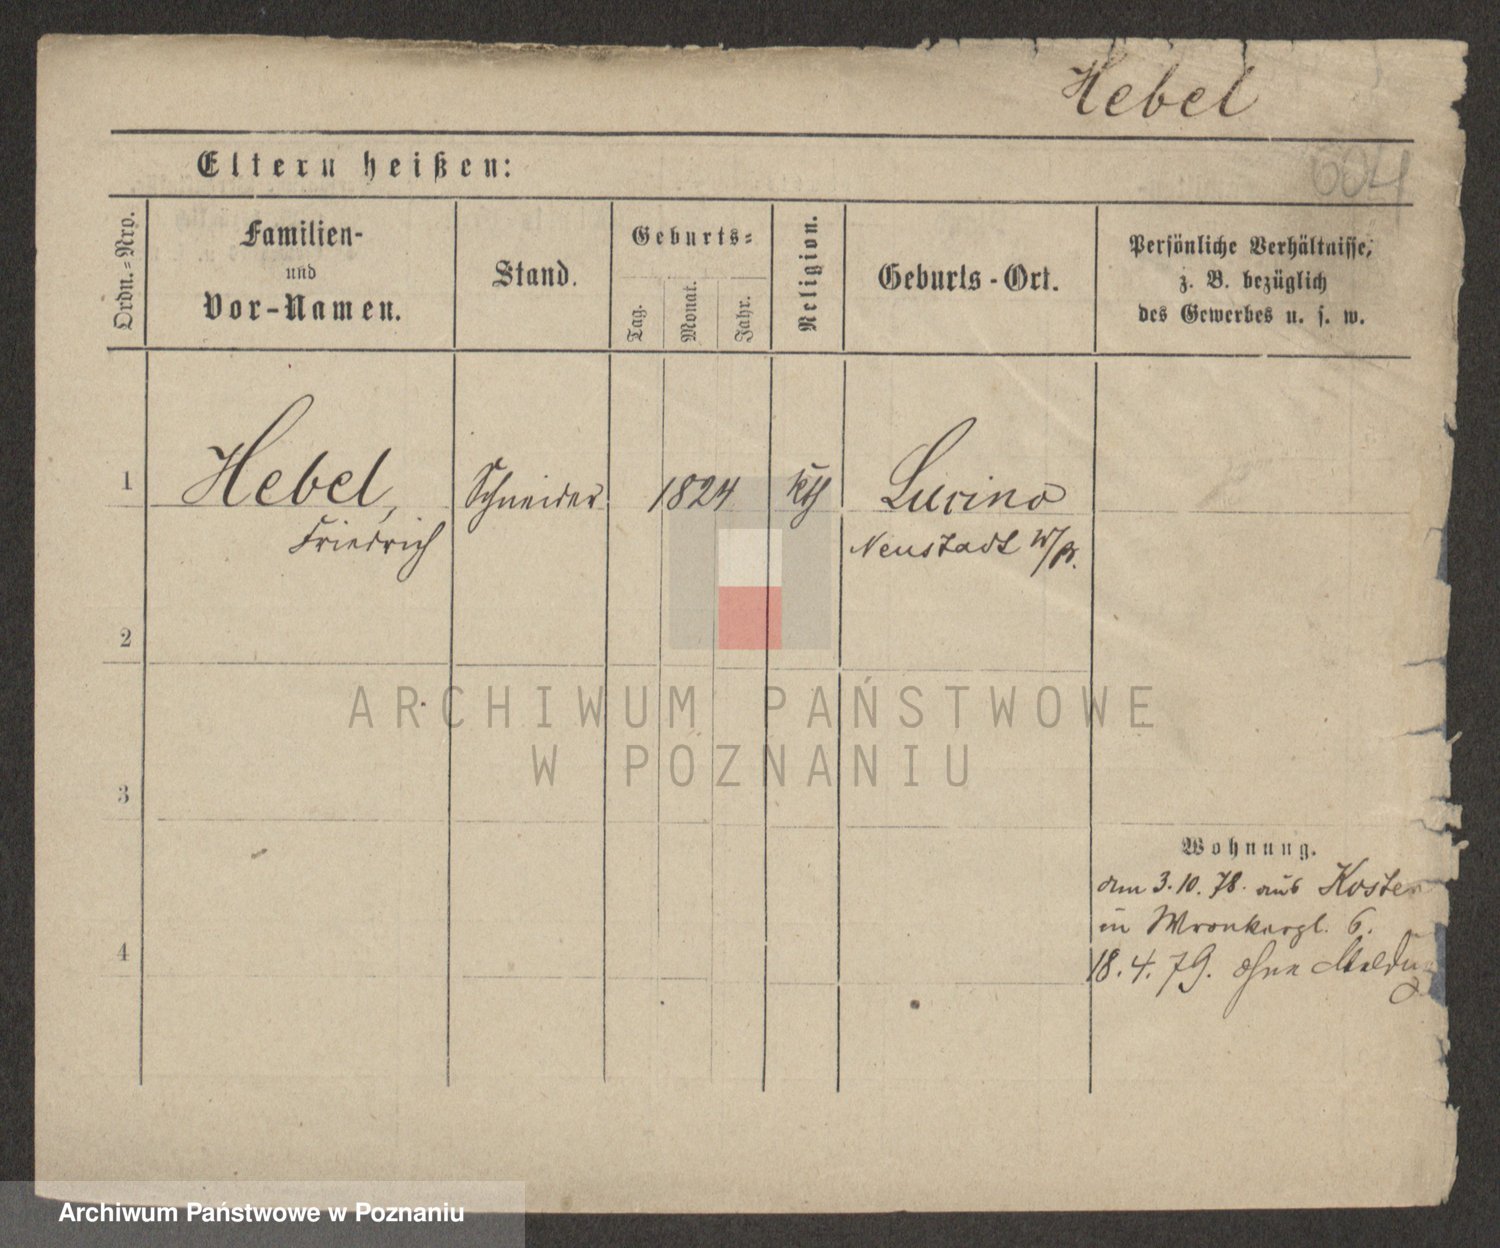 Hebel
604
Eltern heißen:
Ordn.=Nro.
Familien-
und
Vor-Namen.
Stand.
Geburts=
Tag.
Monat.
Jahr.
Religion.
Geburts-Ort.
Persönliche Verhältnisse,
z. B. bezüglich
des Gewerbes u. s. w.
1
Hebel,
Friedrich
Schneider
1824
kth
Lucino
Neustadt W/pr.
2
3
4
Wohnung.
am 3.10.78. aus Kosten
in Wronkergl. 6.
18.4.79. ohne Meldung
ARCHIWUM PAŃSTWOWE
W POZNANIU
Archiwum Państwowe w Poznaniu